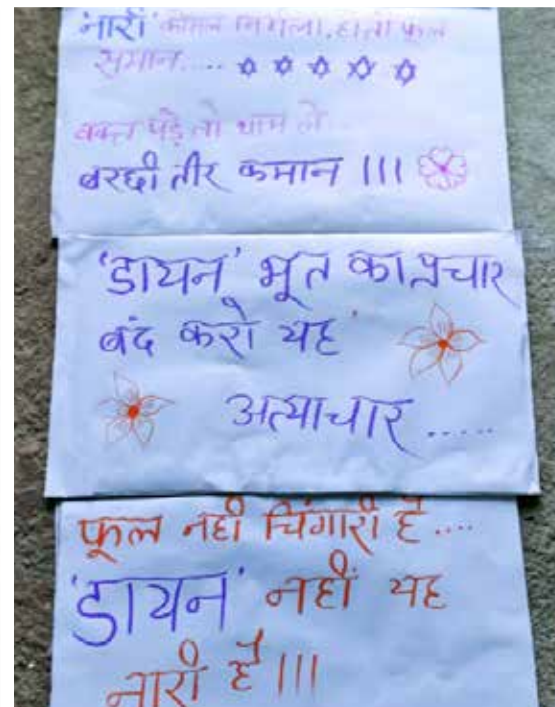 'नारी' कोमल निर्मला, होती फूल
समान....
वक्त पड़े तो थाम ले..
बरछी तीर कमान !!!
'डायन' भूत का प्रचार
बंद करो यह
अत्याचार.....
फूल नही चिंगारी है....
'डायन' नहीं यह
नारी है!!!